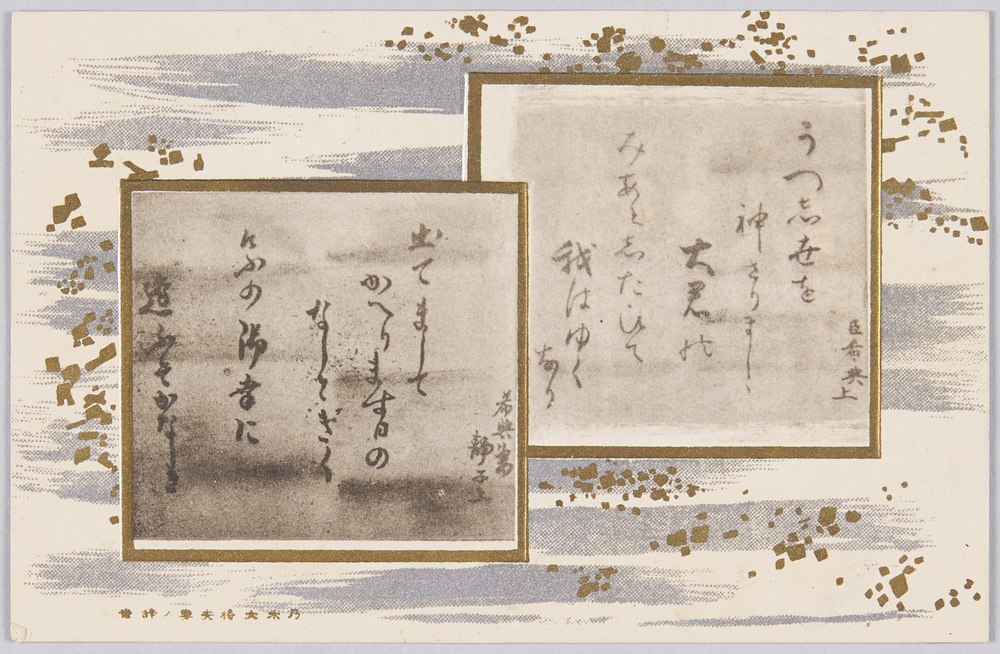 臣希典上
うつ志世を
神さりましゝ
大君の
みあと志たひて
我はゆく
なり
希典妻
静子上
出てまして
かへります日の
なしときく
けふの御幸に
逢ふそかなしき
乃木大將夫妻ノ辞